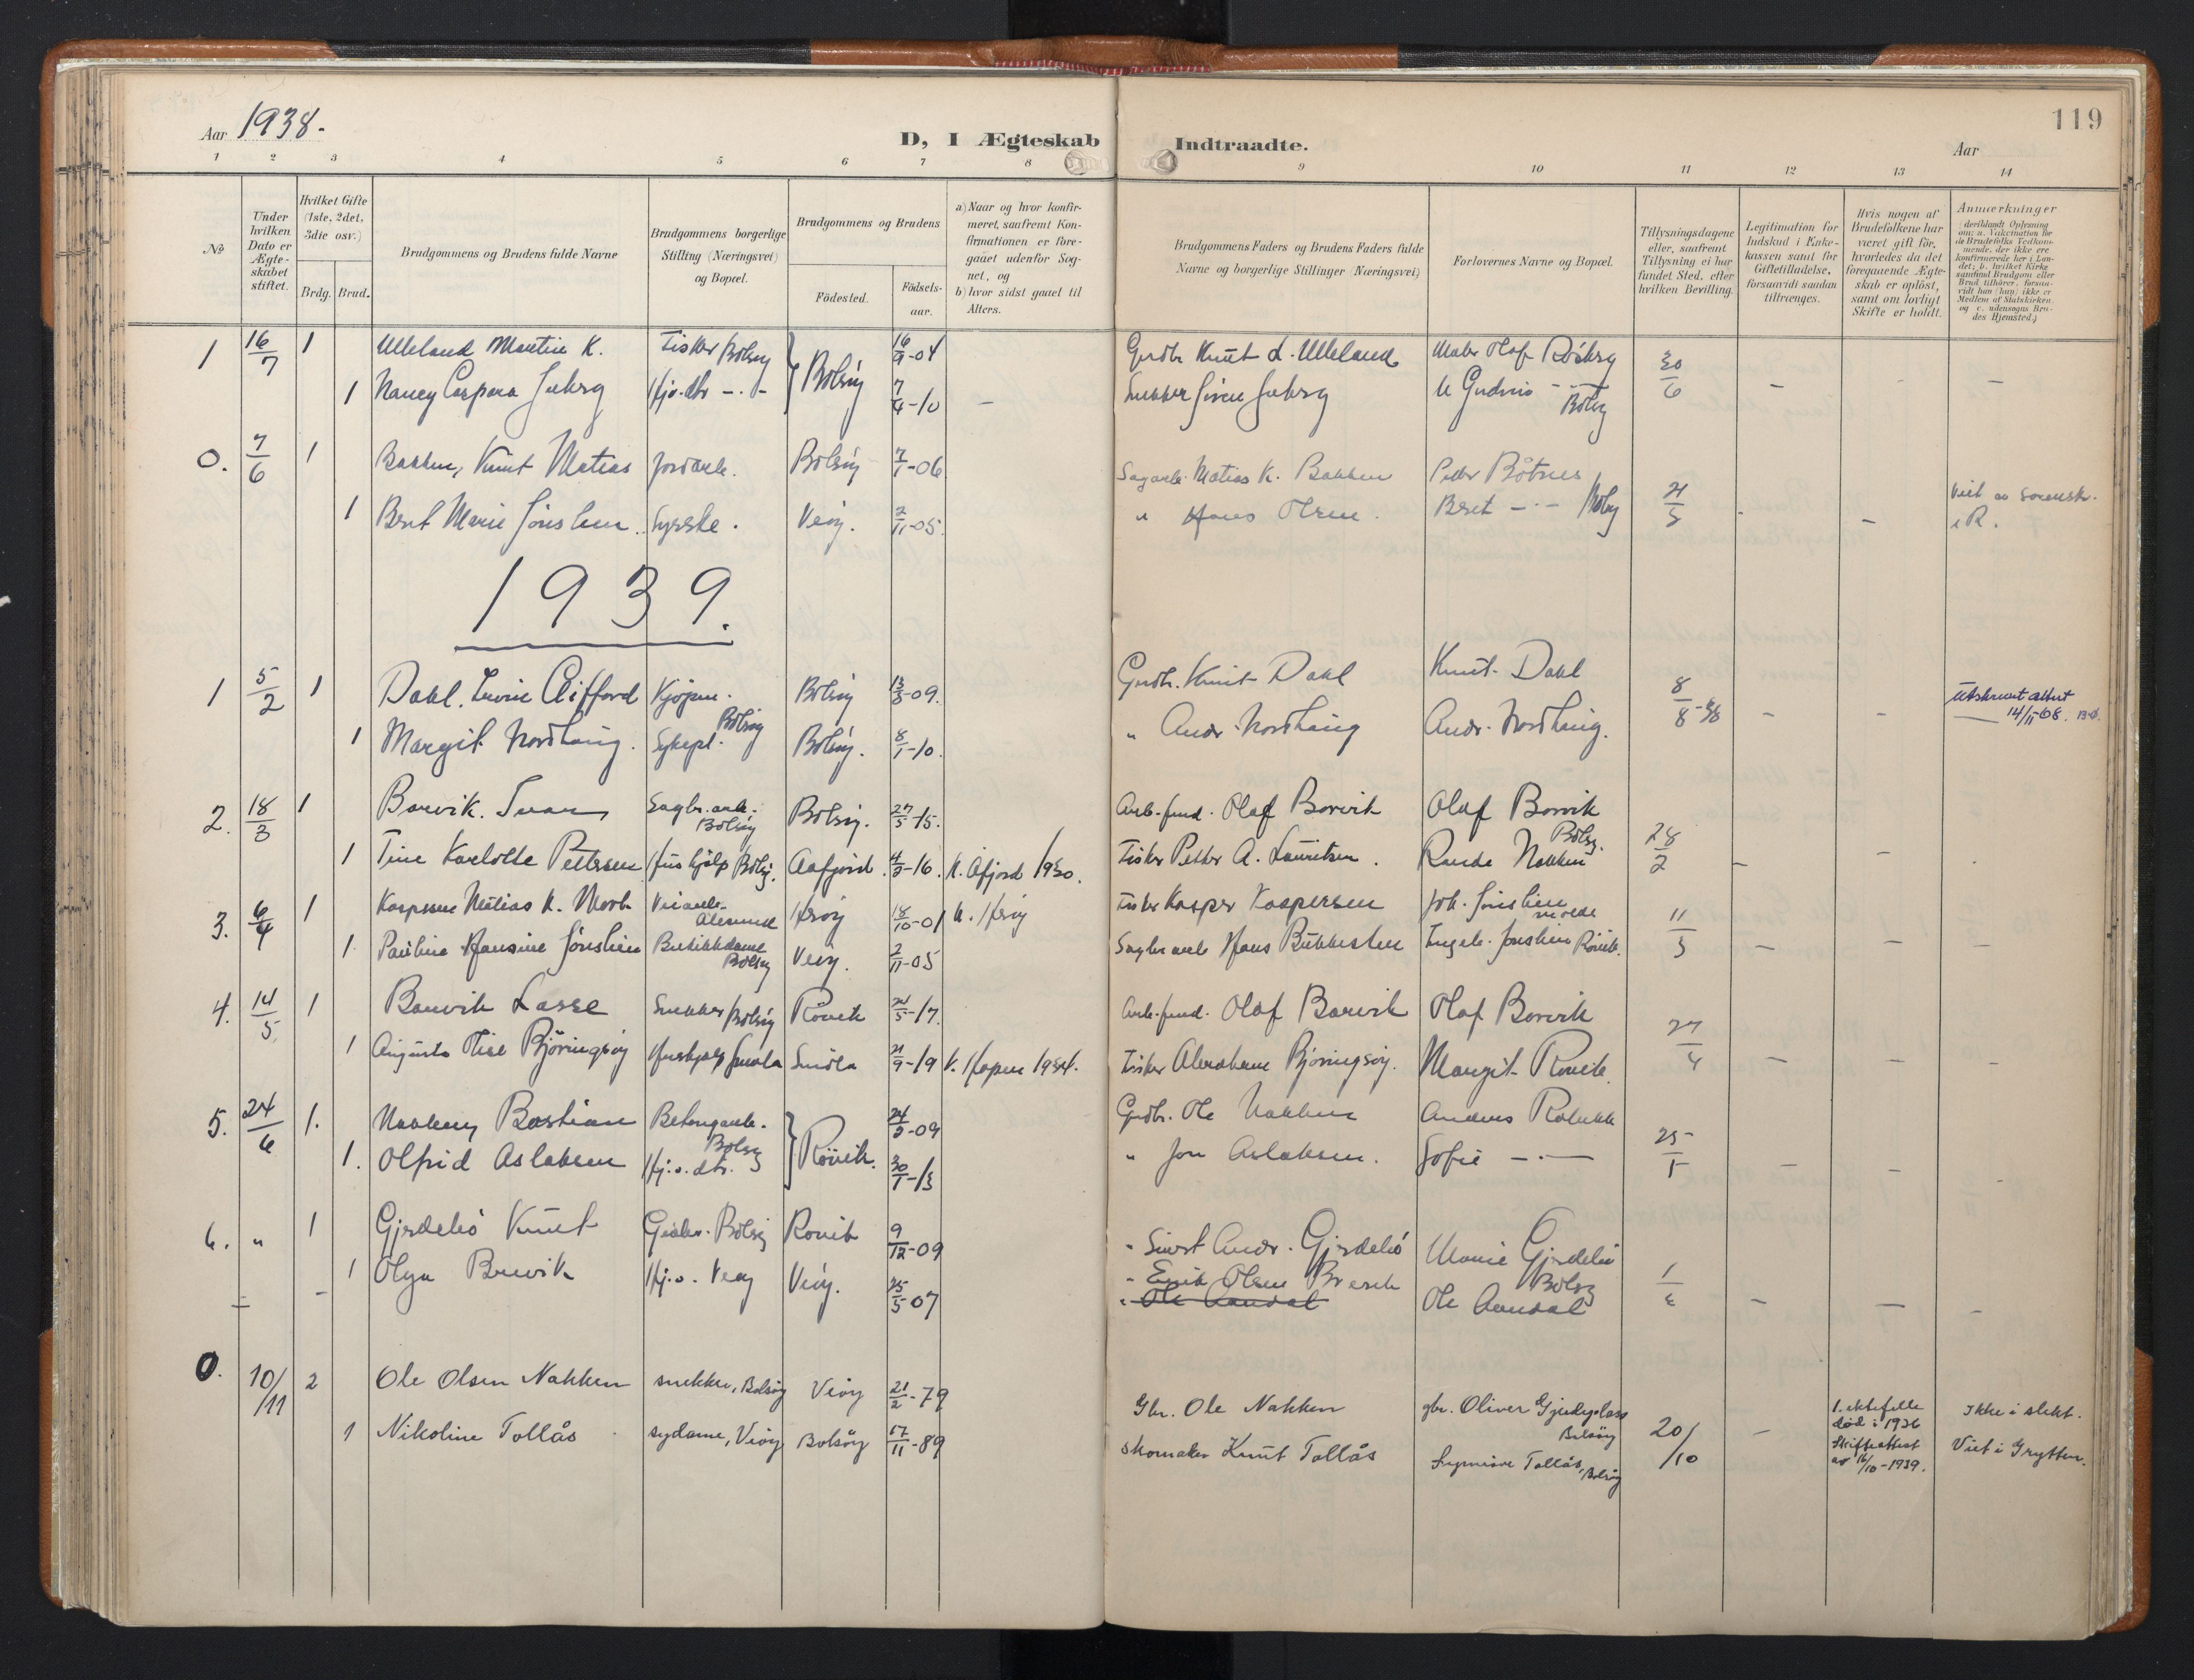 Aar 1938.
D, I Ægteskab Indtraadte.
119
Aar
1 2 3 4 5 6 7 8 9 10 11 12 13 14
No
Under hvilken Dato er Ægteskabet stiftet.
Hvilket Gifte (1ste, 2det, 3die osv.)
Brdg. Brud.
Brudgommens og Brudens fulde Navne
Brudgommens borgerlige Stilling (Næringsvei) og Bopæl.
Brudgommens og Brudens
Födested.
Födselsaar.
a) Naar og hvor konfirmeret, saafremt Konfirmationen er foregaaet udenfor Sognet, og
b) hvor sidst gaaet til Alters.
Brudgommens Faders og Brudens Faders fulde Navne og borgerlige Stillinger (Næringsvei)
Forlovernes Navne og Bopæl.
Tillysningsdagene eller, saafremt Tillysning ei har fundet Sted, efter hvilken Bevilling.
Legitimation for Indskud i Enkekassen samt for Giftetilladelse, forsaavidt saadan tiltrænges.
Hvis nogen af Brudefolkene har været gift för, hvorledes da det foregaaende Ægteskab er oplöst, samt om lovligt Skifte er holdt.
Anmærkninger
1 16/7 1 Ulleland Martin K. Fisker Bolsøy 16/9-04 Grdbr. Knut L. Ulleland Maler Olaf 30/6 -
1 Nancy Caspara Hj.v.dtr -"- Bolsøy 7/4-10 - Snekker Bolsøy
0. 7/6 1 Bakken, Knut Matias Jordarb. Bolsøy 7/1-06 Sagarb. Matias K. Bakken Peder
1 Beret Marie Jønslien. Syerske. Veøy. 2/11-05. " Hans Olsen. Beret -"- 21/5 - - i R.
1939.
1 5/2 1 Dahl. Clifford Kjøpm. Bolsøy 13/3-09. Grdbr. Knut Dahl Knut Dahl 8/8-38 - - Utskrevet attest
1 Margit Nordhaug. Sykepl. Bolsøy Bolsøy. 8/1-10. " Andr. Nordhaug Andr. Nordhaug. 14/11-68.
2. 18/3 1 Borvik. Ivar Sagbr.arb. Bolsøy Bolsøy. 27/5-15. Arb.-fmd. Olaf Borvik Olaf Borvik Bolsøy. 28/2
1 Tine Karlotte Pettersen Hushjelp Bolsøy. Aafjord. 4/3-16. K. Åfjord 1930. Fisker Petter A. Lauritsen. Nakken - -
3. 6/4 1 Kaspersen Matias K. Veiarb. Ålesund Herøy 18/10-01 K. Herøy Fisker Kasper Kaspersen Joh. Jønslien 11/3
1 Pauline Hansine Jønslien Butikkdame Bolsøy Veøy. 2/11-05 Sagbr.arb Hans Ingeb. Jønslien Røvik. - - -
4. 14/5 1 Borvik Lasse Snekker Bolsøy Røvik 24/5-17. Arb.-fmd. Olaf Borvik Olaf Borvik 27/4
1 Augusta Bjøringsøy Hushjelp Smøla Smøla 21/9-19 K. Hopen 1934. Fisker Abraham Bjøringsøy. Margit Røvik. - - -
5. 24/6 1. Nakken, Bastian Betongarb. Bolsøy 24/2-09 Grdbr. Ole Nakken Anders 25/5
1. Olfrid Aslaksen Hj.v.dtr. Røvik. 30/1-13 " Jon Aslaksen. Sofie -"- - - -
6. " 1 Gjerdelið Knut Bolsøy Røvik 9/12-09 " Sivert Andr. Gjerdelið Marie Gjerdelið Bolsøy
1 Olga Brevik Hj.v. Veøy Veøy. 25/5-07 " Erik Olsen Brevik
" Ole Aandal Ole Aandal - - -
0. 10/11 2 Ole Olsen Nakken snekker, Bolsøy Veøy 21/2-79 Gbr. Ole Nakken gbr. Oliver Bolsøy 20/10 - 1. ektefelle død i 1936 Ikke i slekt.
1 Nikoline Tollås sydame, Veøy Bolsøy 17/11-89 skomaker Knut Tollås Tollås, Bolsøy Skifteattest av 16/10-1939. Viet i Grytten.